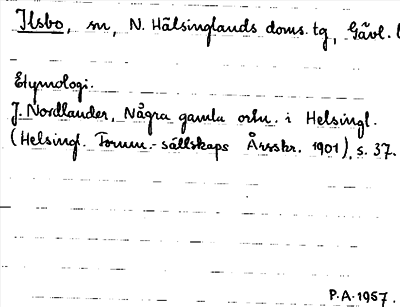 Ilsbo, sn, N. Hälsinglands doms. tg, Gävl. l
Etymologi.
J. Nordlander, Några gamla ortn. i Helsingl.
(Helsingl. Fornm.-sällskaps Årsskr. 1901), s. 37.
P.A. 1957.